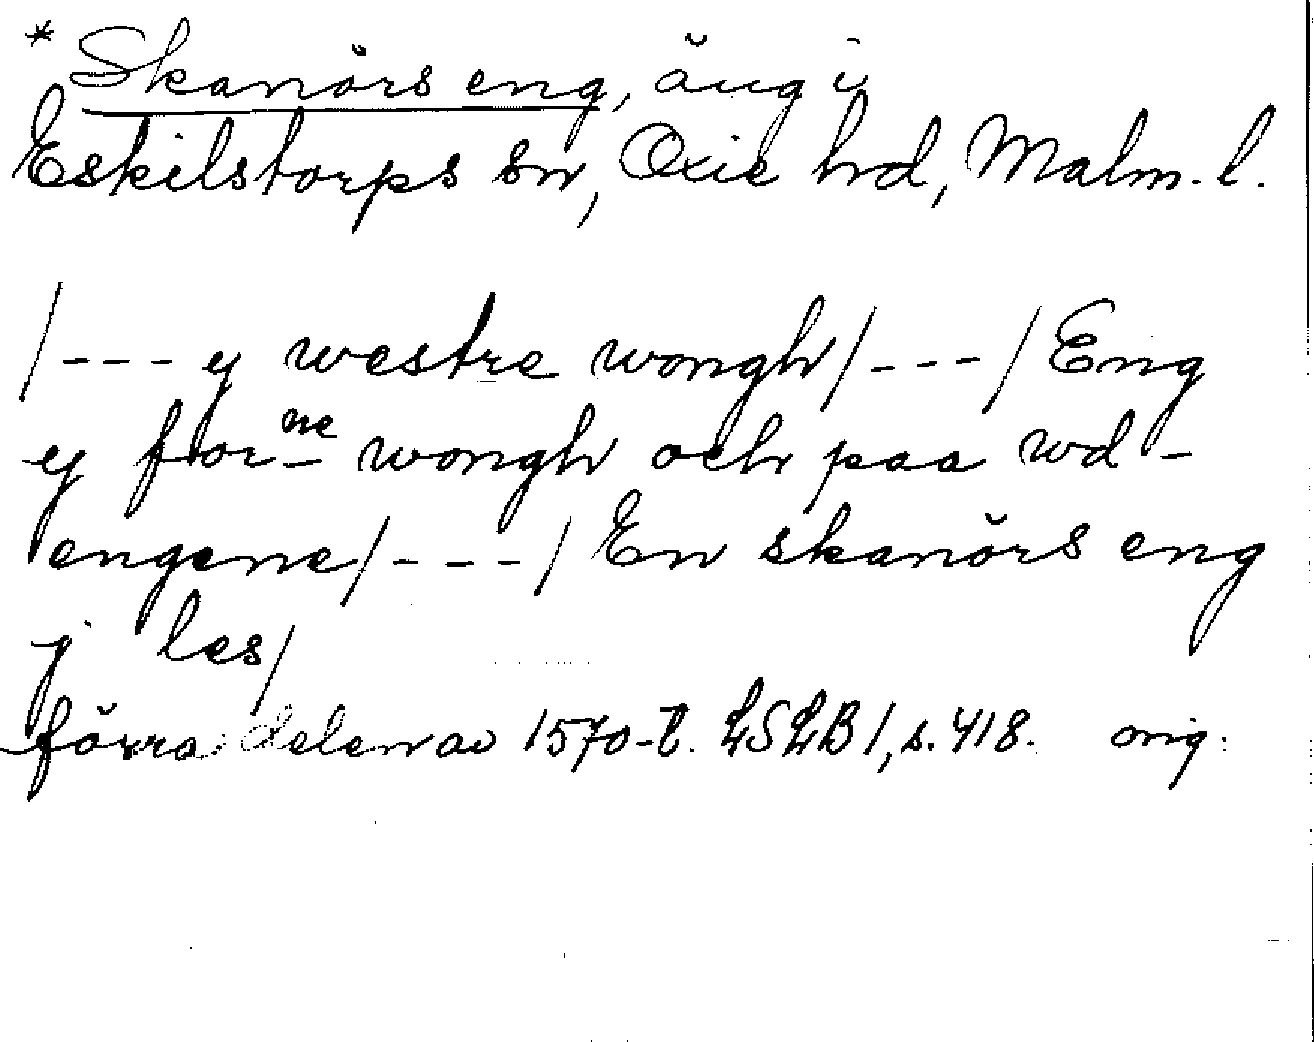 * Skanörs eng, äng i
Eskilstorps sn, Oxie hd, Malm. l.
/--- y westre wongh/---/ Eng
y for ne wongh och paa wd-
engene/---/ En skanörs eng
j les/
förra delen av 1570-t. LSLB 1, s. 418. orig.